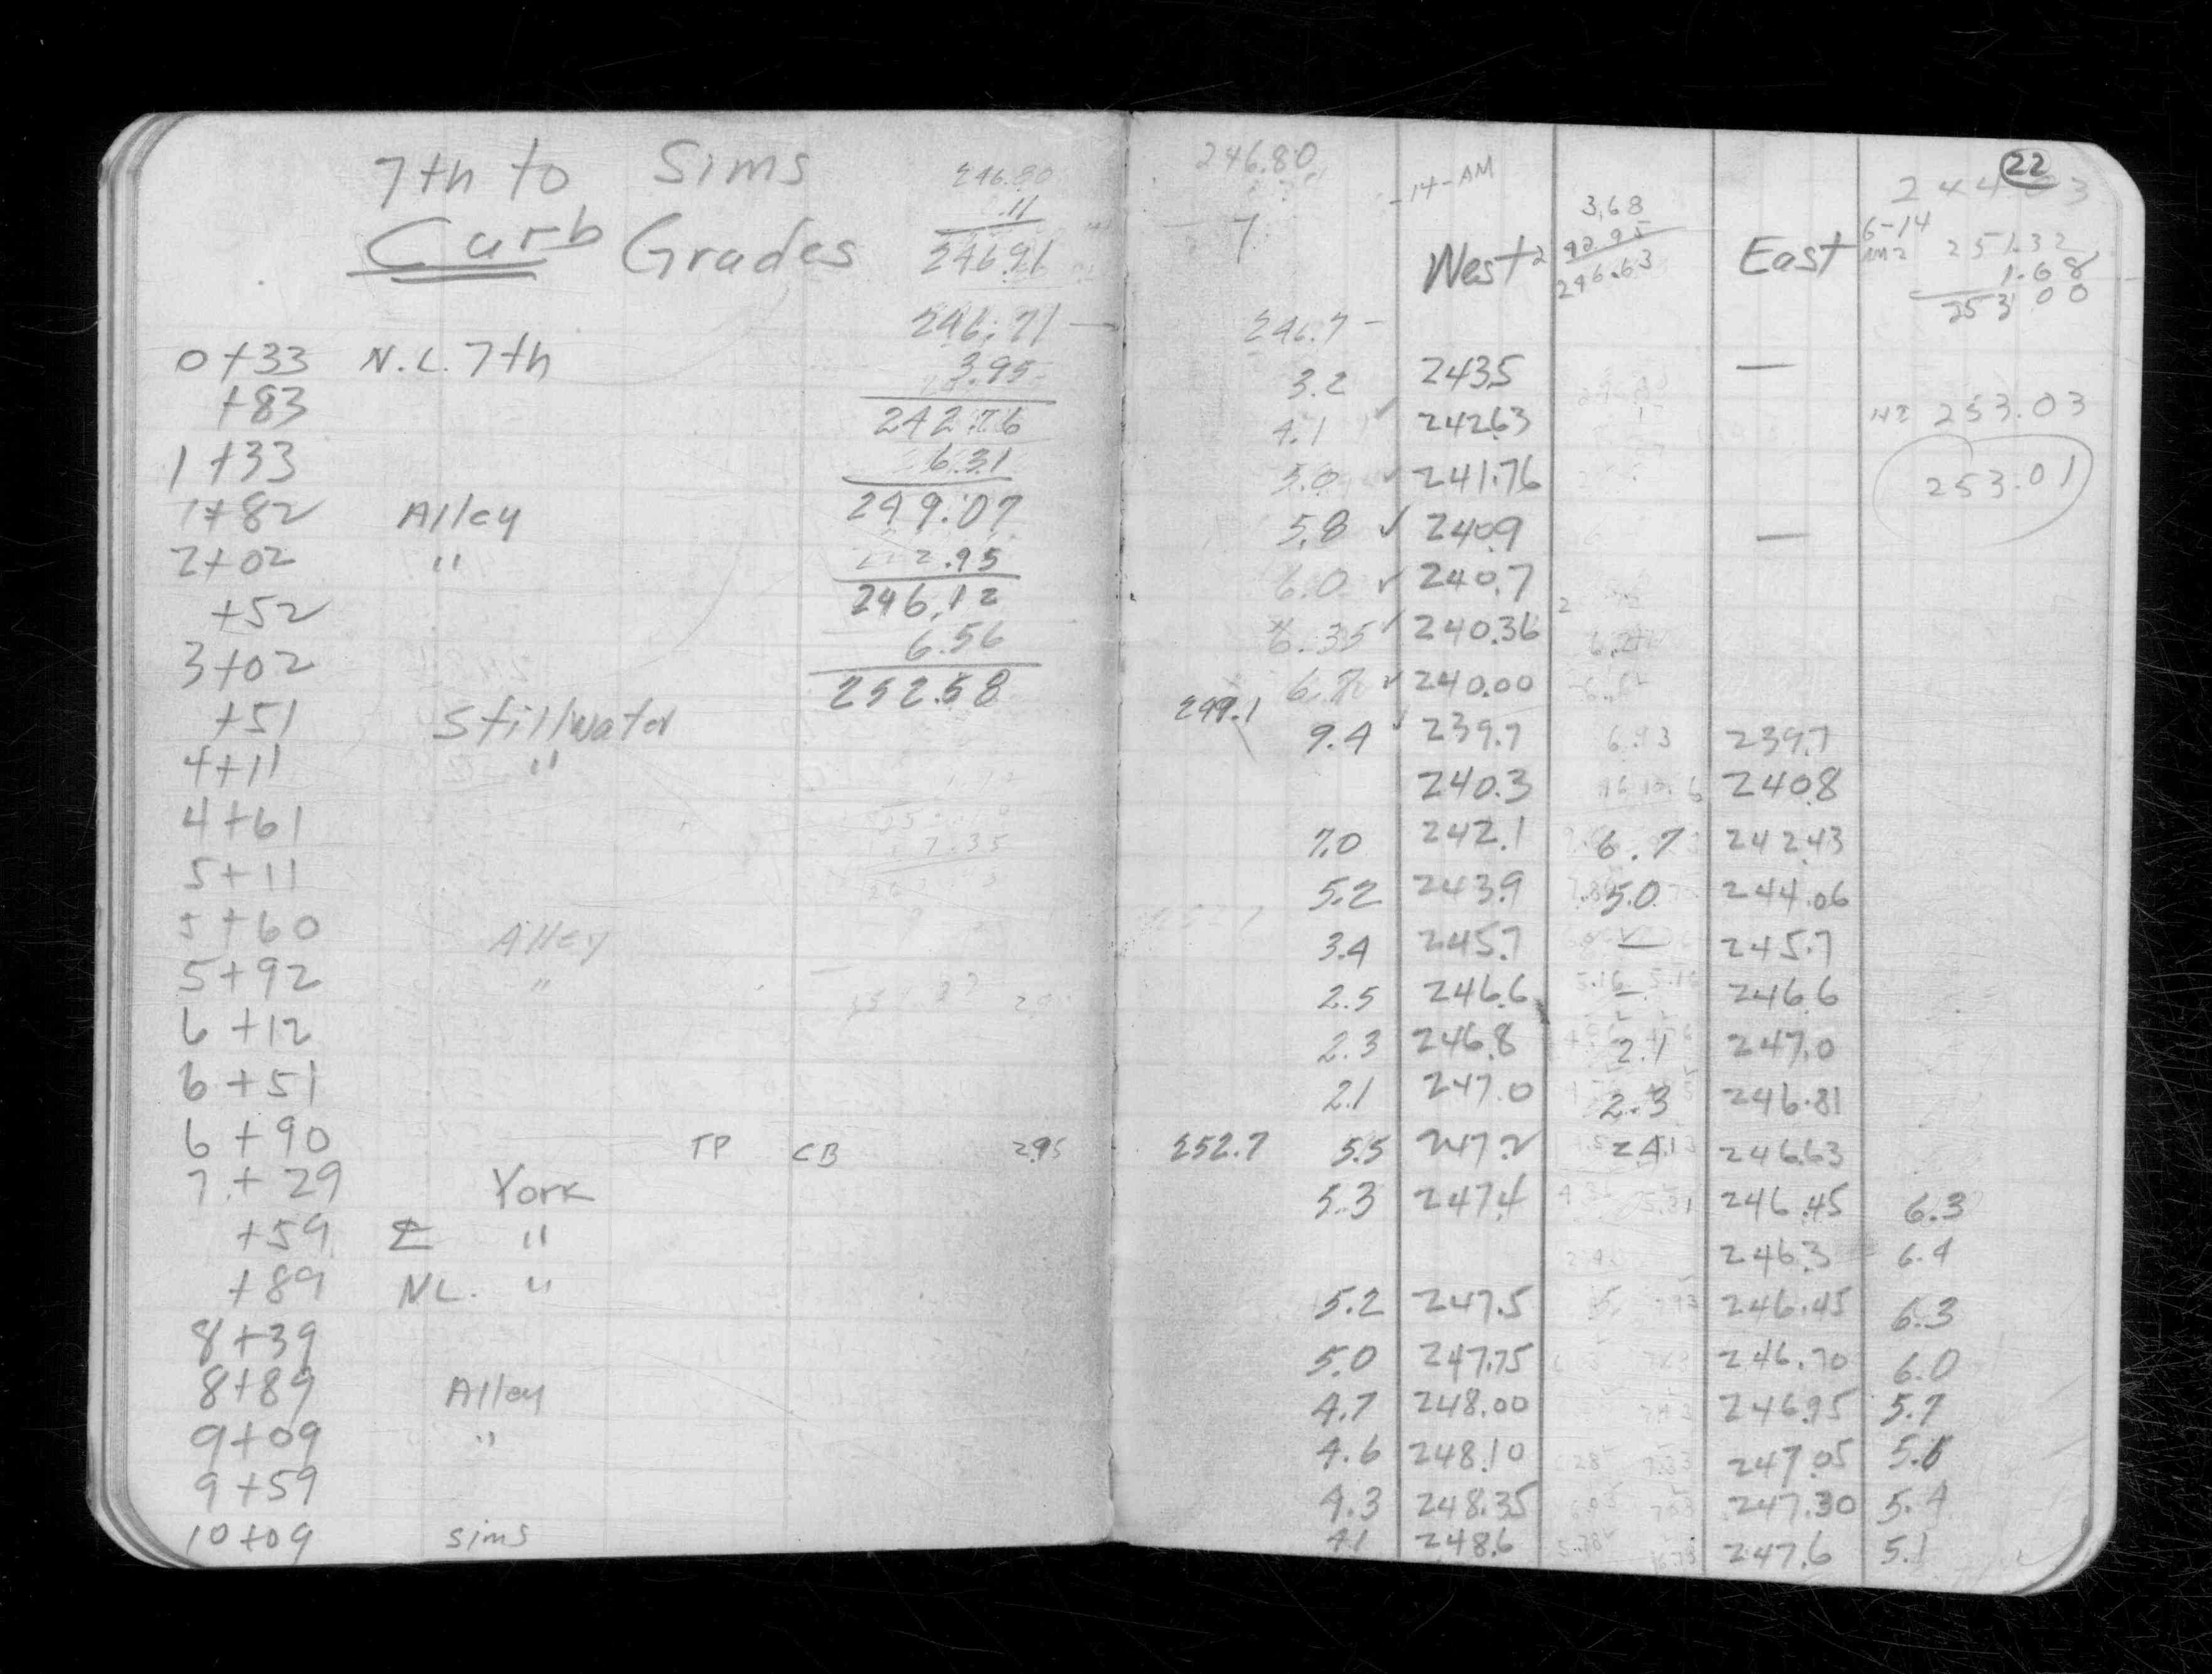 22
7th to Sims
Curb Grades
246.80
.11
246.91
246.71 —
3.95
242.76
6.31
249.07
2.95
246.12
6.56
252.58
0+33 N.L. 7th
+83
1+33
1+82 Alley
2+02 "
+52
3+02
+51 Stillwater
4+11 "
4+61
5+11
5+60 Alley
5+92 "
6+12
6+51
6+90 TP CB 2.95
7+29 York
+59 ℄ "
+89 NL. "
8+39
8+89 Alley
9+09 "
9+59
10+09 Sims
246.80
-14-AM
3.68
42.95
246.63
West East
6-14
251.32
1.68
253.00
246.7 -
3.2 243.5 —
253.03
4.1 242.63
5.0 ✓ 241.76
253.01
5.8 ✓ 240.9 —
6.0 ✓ 240.7
6.35 ✓ 240.36
6.7 ✓ 240.00
249.1
9.4 ✓ 239.7 6.93 239.7
240.3 240.8
7.0 242.1 6.7 242.43
5.2 243.9 5.0 244.06
3.4 245.7 — 245.7
2.5 246.6 — 246.6
2.3 246.8 2.1 247.0
2.1 247.0 2.3 246.81
252.7 5.5 247.2 2.4 246.63
5.3 247.4 246.45 6.3
246.3 6.4
5.2 247.5 246.45 6.3
5.0 247.75 246.70 6.0
4.7 248.00 246.95 5.7
4.6 248.10 247.05
4.3 248.35 247.30 5.4
4.1 248.6 247.6 5.1